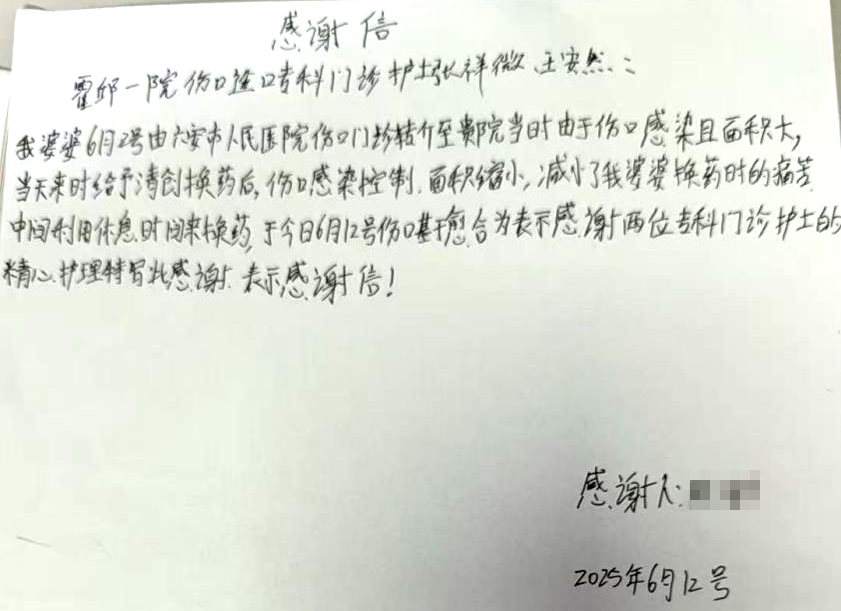 感谢信
霍邱一院伤口造口专科门诊护士张祥微、王安然：
我婆婆6月2号由六安市人民医院伤口门诊转介至贵院当时由于伤口感染且面积大，
当天来时给予清创换药后，伤口感染控制．面积缩小，减小了我婆婆换药时的痛苦
中间利用休息时间来换药，于今日6月12号伤口基于愈合为表示感谢两位专科门诊护士的
精心护理特写此感谢．表示感谢信！
感谢人：
2025年6月12号